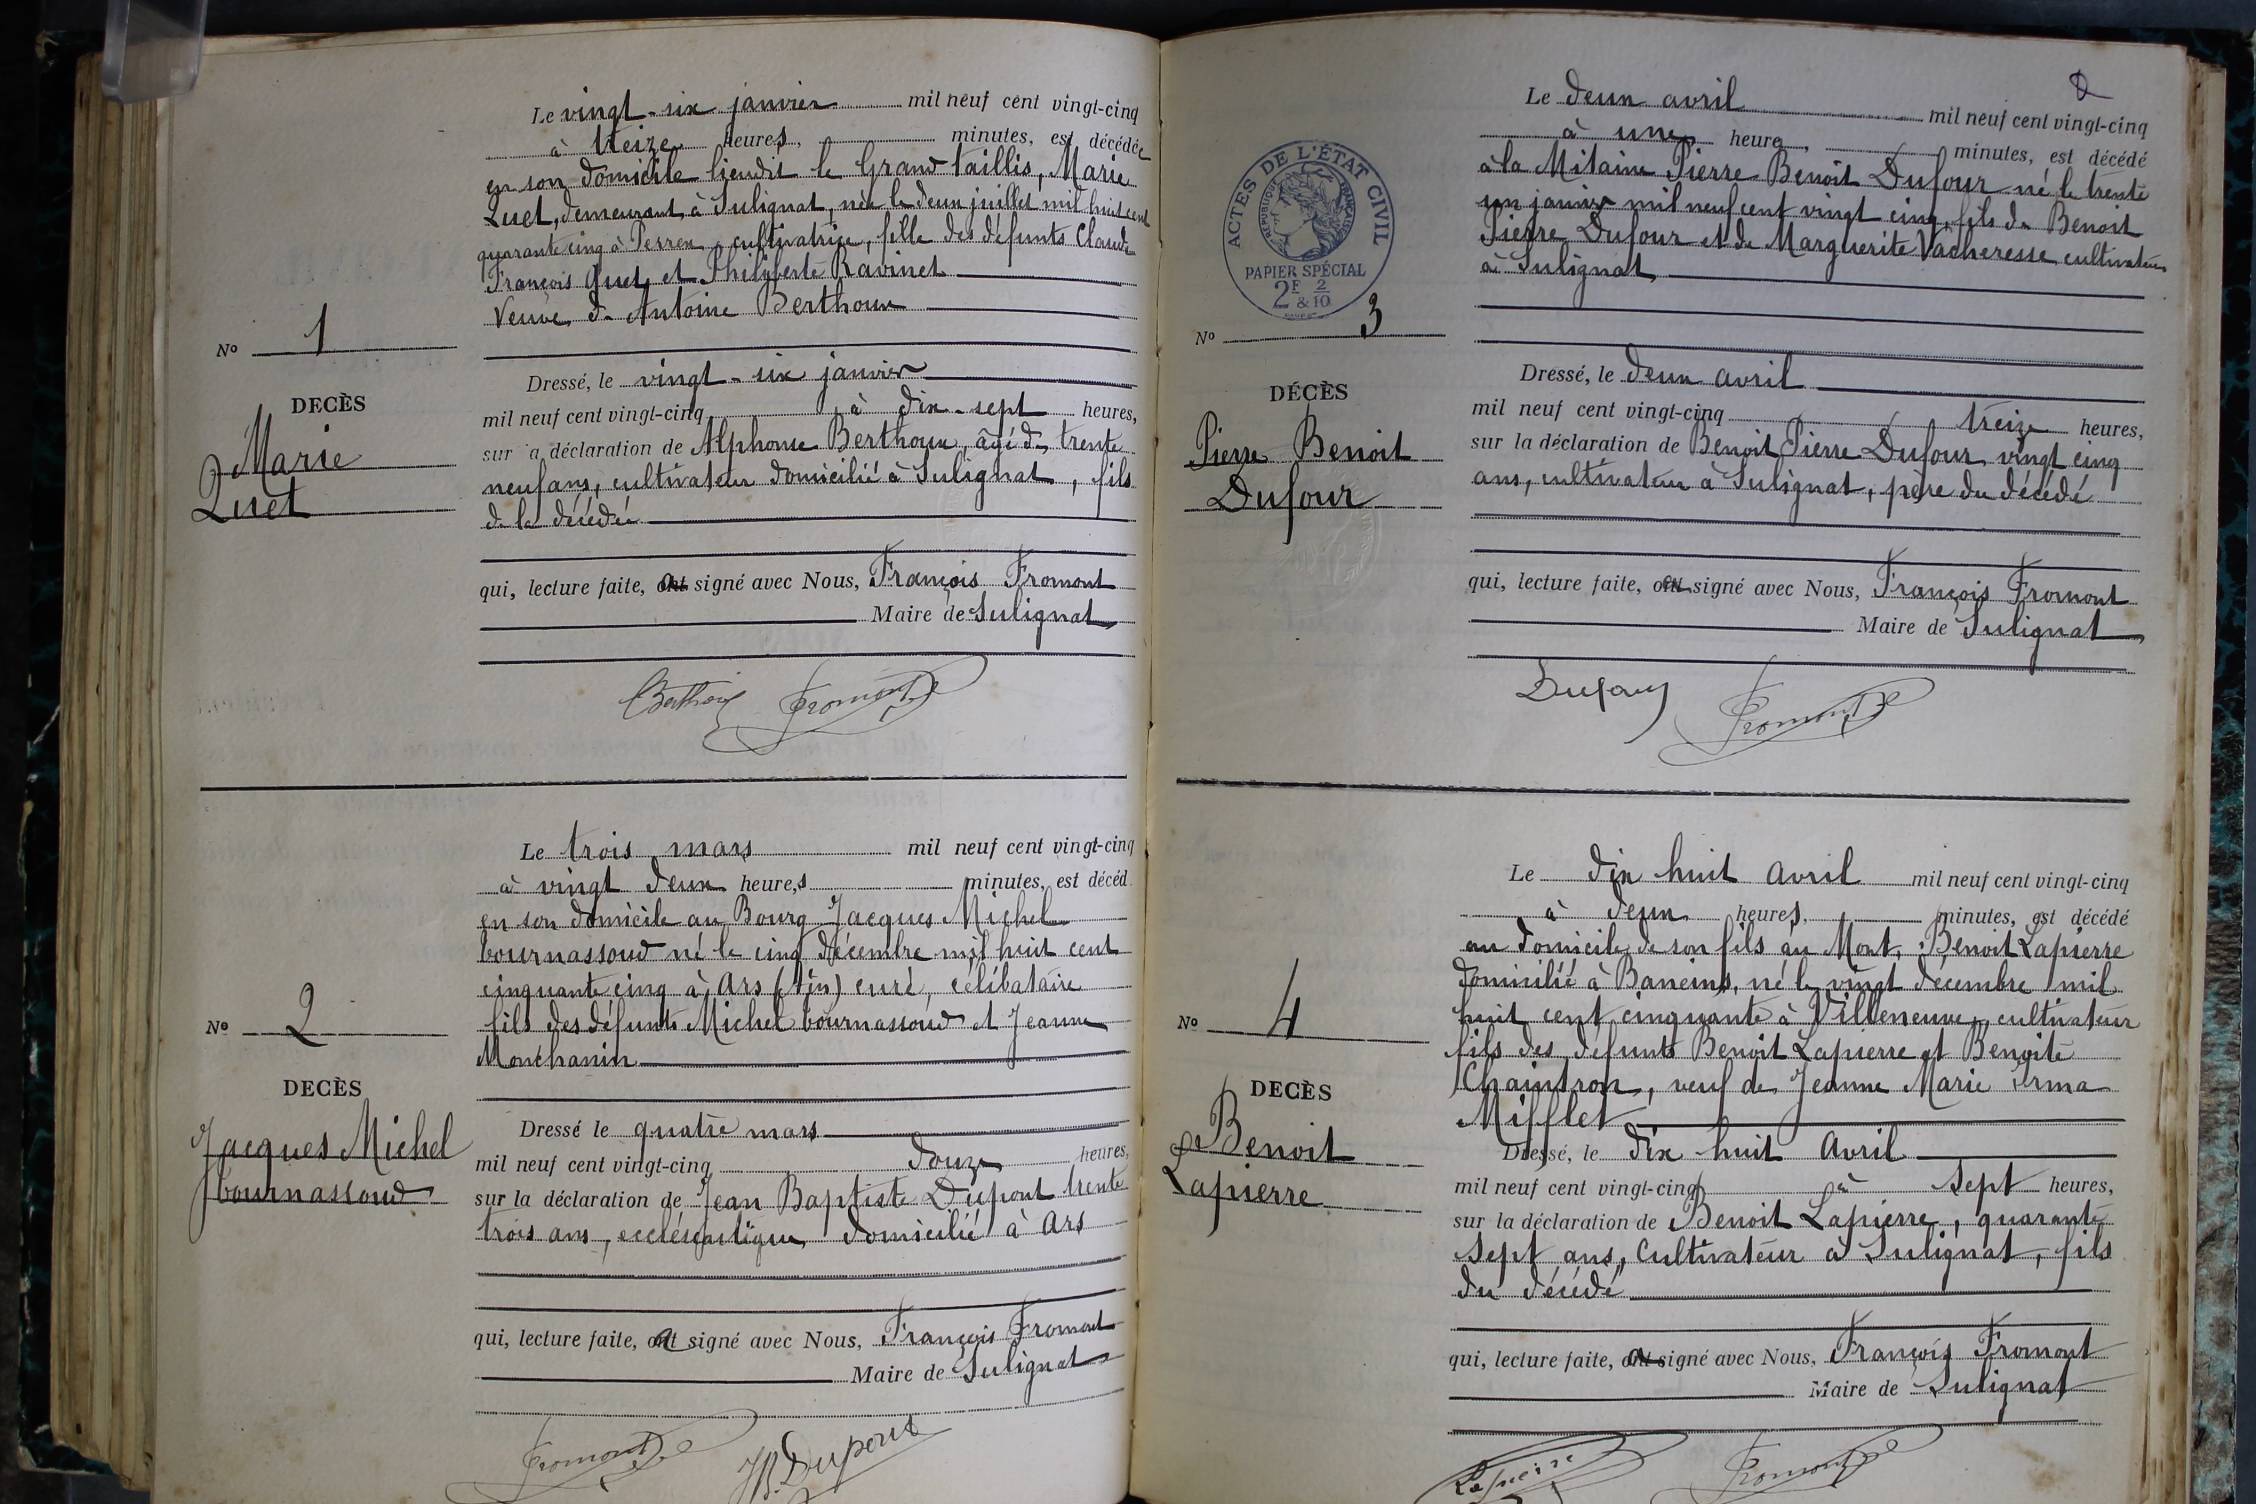 Le vingt-six janvier mil neuf cent vingt-cinq
à treize heures, minutes, est décédée
en son domicile lieudit le Grand taillis, Marie
Quet, demeurant à Sulignat, née le deux juillet mil huit cent
quarante cinq à Perrex, cultivatrice, fille des défunts Claude
François Quet et Philiberte Ravinet
Veuve de Antoine Berthoux
No 1
DECÈS
Marie
Quet
Dressé, le vingt-six janvier
mil neuf cent vingt-cinq à dix-sept heures,
sur a déclaration de Alphonse Berthoux, âgé de trente
neuf ans, cultivateur domicilié à Sulignat, fils
de la décédée
qui, lecture faite, a signé avec Nous, François Fromont
Maire de Sulignat
Berthoux Fromont
Le trois mars mil neuf cent vingt-cinq
à vingt deux heures minutes, est décéd
en son domicile au Bourg Jacques Michel
tournassoud né le cinq décembre mil huit cent
cinquante cinq à Ars (Ain) curé, célibataire
fils des défunts Michel tournassoud et Jeanne
Monchanin
No 2
DECÈS
Jacques Michel
tournassoud
Dressé le quatre mars
mil neuf cent vingt-cinq douze heures,
sur la déclaration de Jean Baptiste Dupont trente
trois ans, ecclésiastique domicilié à Ars
qui, lecture faite, a signé avec Nous, François Fromont
Maire de Sulignat
Fromont JB. Dupont
2
ACTES DE L'ÉTAT CIVIL
RÉPUBLIQUE FRANÇAISE
PAPIER SPÉCIAL
2F & 2/10
Le deux avril mil neuf cent vingt-cinq
à une heure, minutes, est décédé
à la Mitaine Pierre Benoit Dufour né le trente
un janvier mil neuf cent vingt cinq, fils de Benoit
Pierre Dufour et de Marguerite Vacheresse cultivateurs
à Sulignat
No 3
DÉCÈS
Pierre Benoit
Dufour
Dressé, le deux avril
mil neuf cent vingt-cinq treize heures,
sur la déclaration de Benoit Pierre Dufour vingt cinq
ans, cultivateur à Sulignat, père du décédé
qui, lecture faite, a signé avec Nous, François Fromont
Maire de Sulignat
Dufour Fromont
Le dix huit avril mil neuf cent vingt-cinq
à deux heures, minutes, est décédé
au domicile de son fils au Mont, Benoit Lapierre
domicilié à Baneins, né le vingt décembre mil
huit cent cinquante à Villeneuve, cultivateur
fils des défunts Benoit Lapierre et Benoite
Chaintron, veuf de Jeanne Marie Irma
Mifflet
No 4
DECÈS
Benoit
Lapierre
Dressé, le dix huit avril
mil neuf cent vingt-cinq à sept heures,
sur la déclaration de Benoit Lapierre, quarante
sept ans, cultivateur à Sulignat, fils
du décédé
qui, lecture faite, a signé avec Nous, François Fromont
Maire de Sulignat
Lapierre Fromont